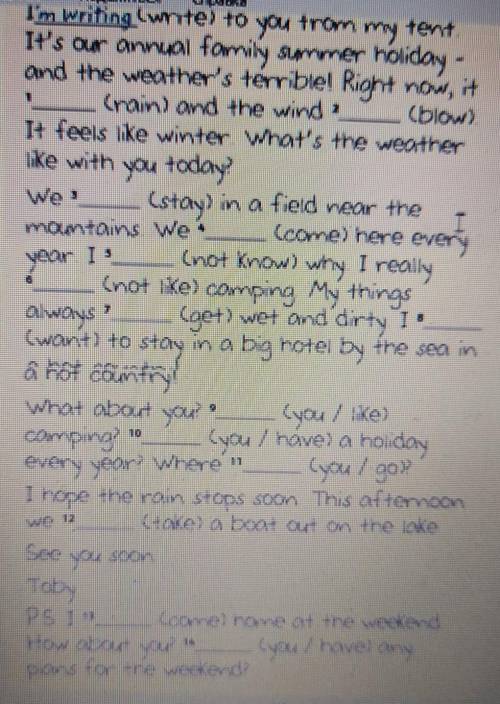 I'm writing (write) to you from my tent.
It's our annual family summer holiday -
and the weather's terrible! Right now, it
1______ (rain) and the wind 2______ (blow).
It feels like winter. What's the weather
like with you today?
We 3______ (stay) in a field near the
mountains. We 4______ (come) here every
year. I 5______ (not know) why. I really
6______ (not like) camping. My things
always 7______ (get) wet and dirty. I 8______
(want) to stay in a big hotel by the sea in
a hot country!
What about you? 9______ (you / like)
camping? 10______ (you / have) a holiday
every year? Where 11______ (you / go)?
I hope the rain stops soon. This afternoon
we 12______ (take) a boat out on the lake.
See you soon
Toby
PS I 13______ (come) home at the weekend.
How about you? 14______ (you / have) any
plans for the weekend?